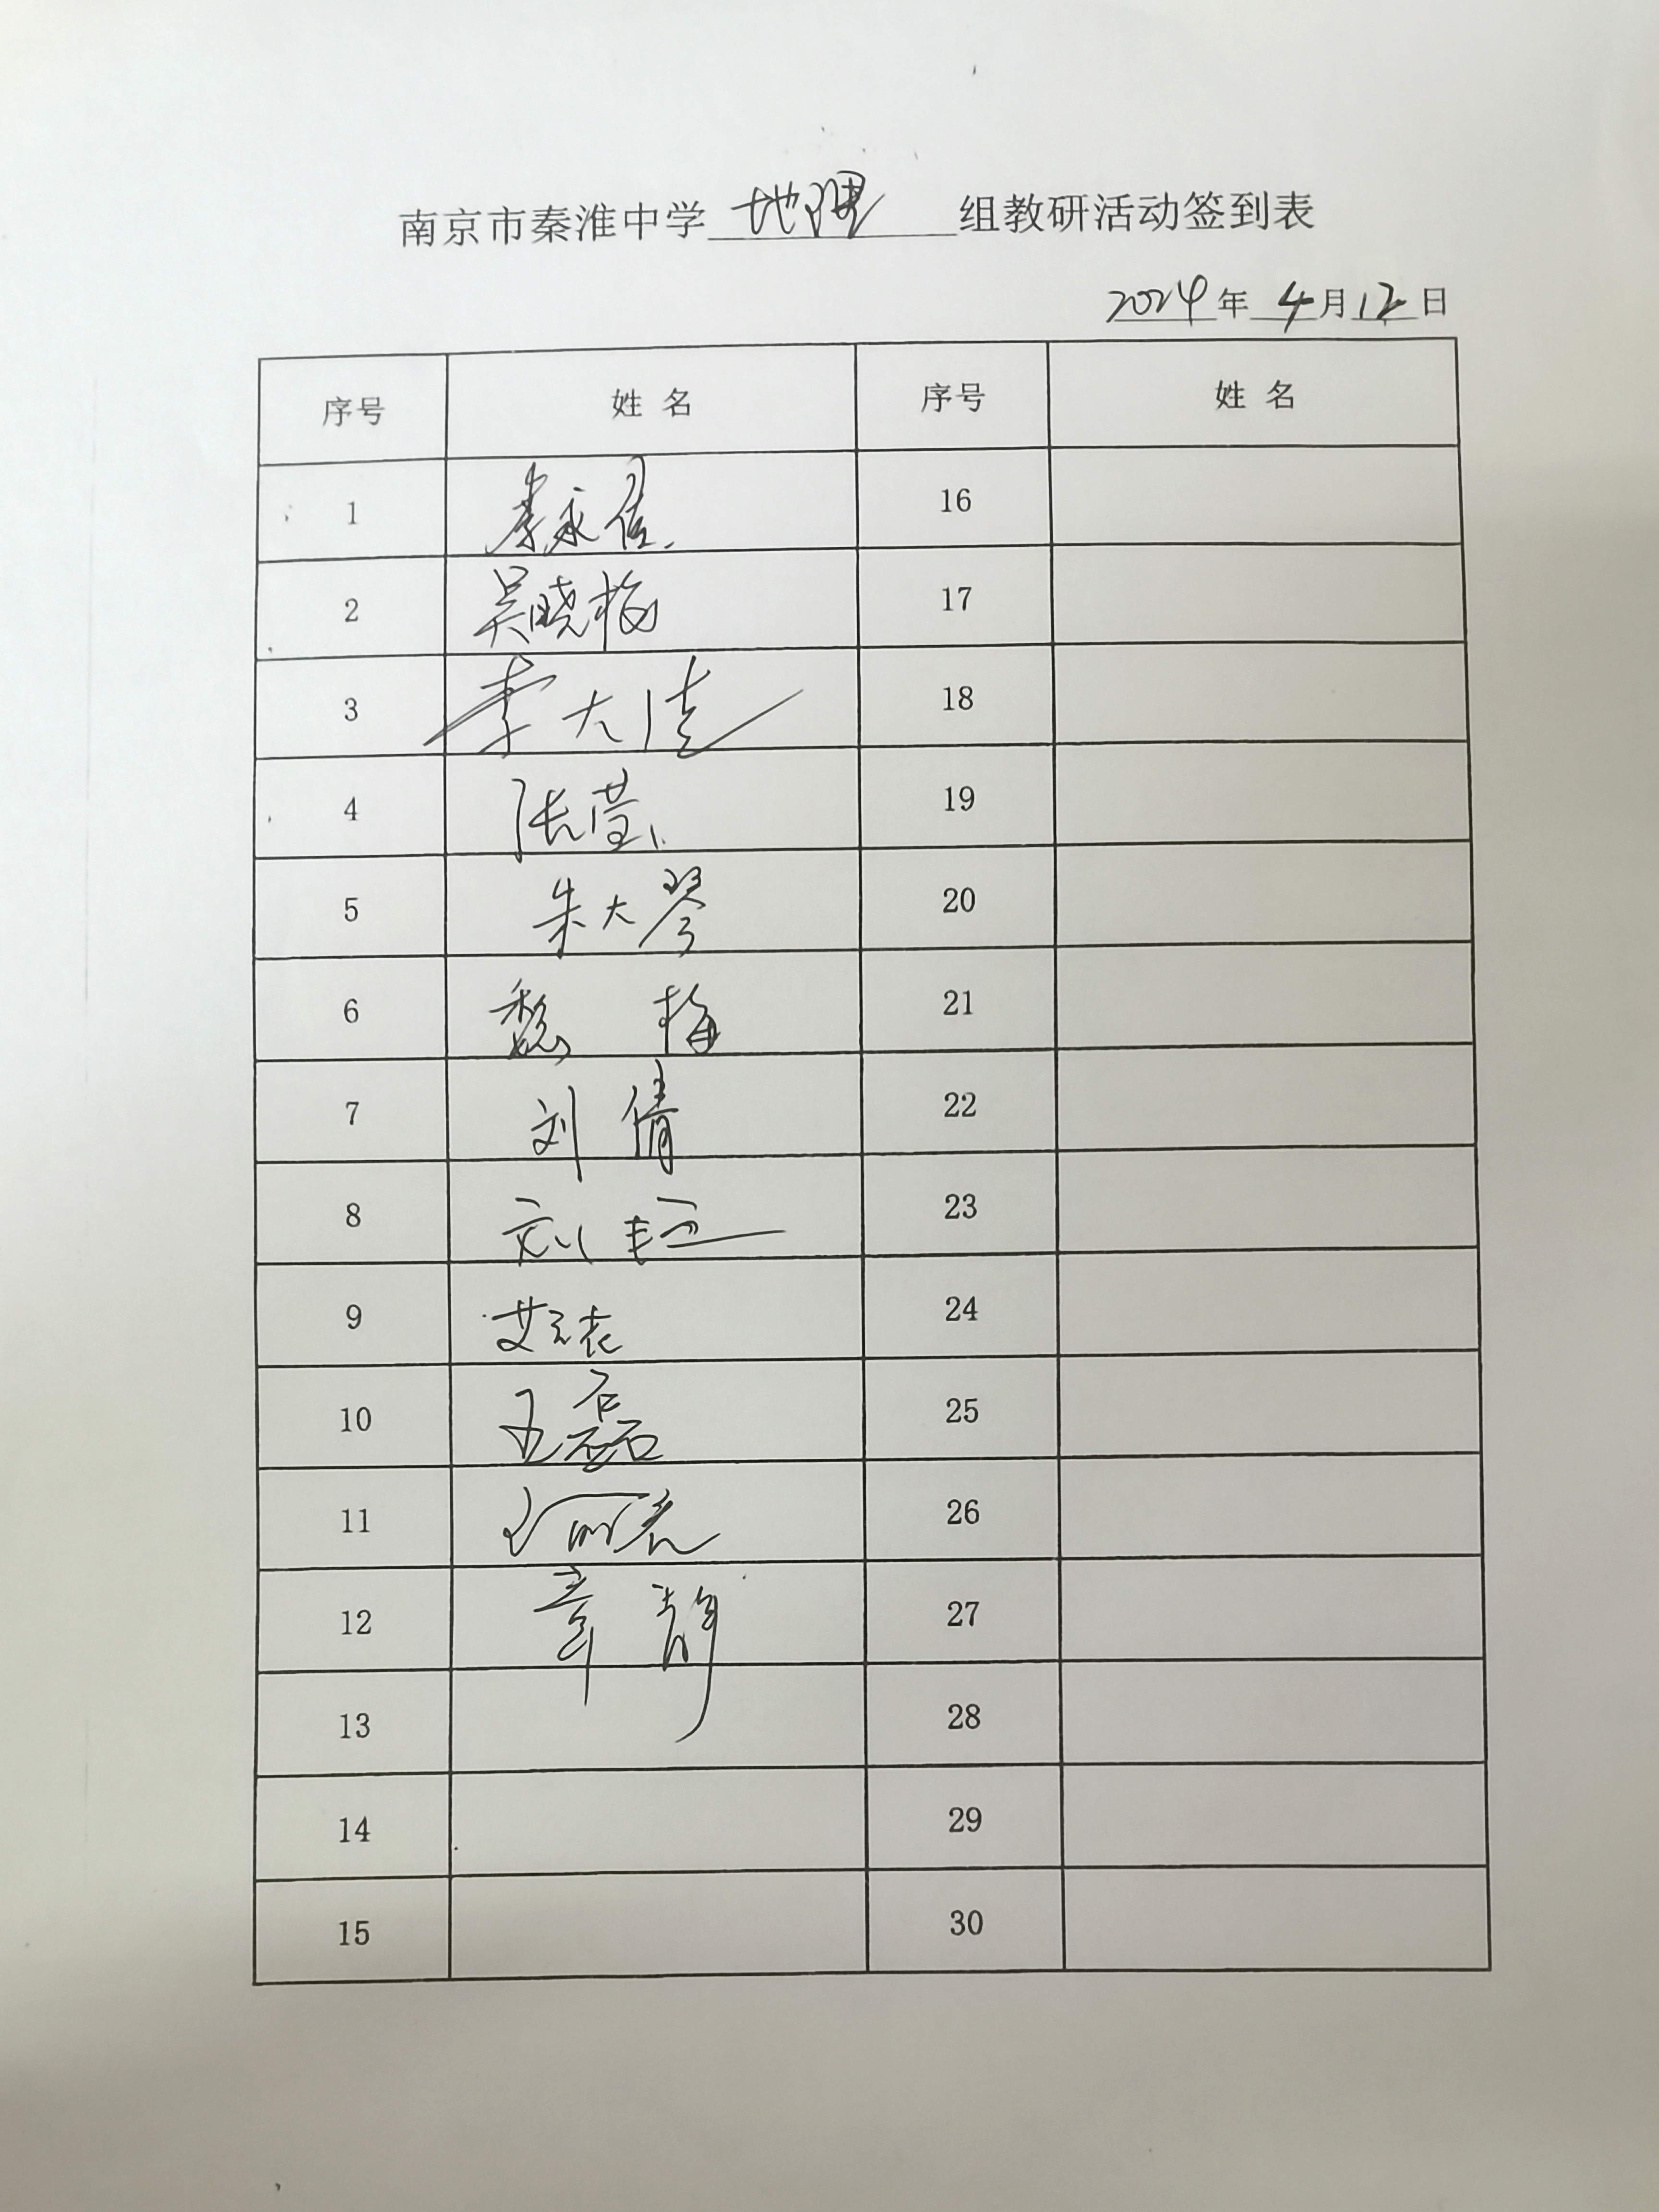 南京市秦淮中学 地理 组教研活动签到表
2024年 4月12日
序号 姓名 序号 姓名
1 李永信 16
2 吴晓梅 17
3 李大佳 18
4 张莹 19
5 朱大琴 20
6 魏梅 21
7 刘倩 22
8 刘 23
9 艾 24
10 王磊 25
11 26
12 章静 27
13 28
14 29
15 30